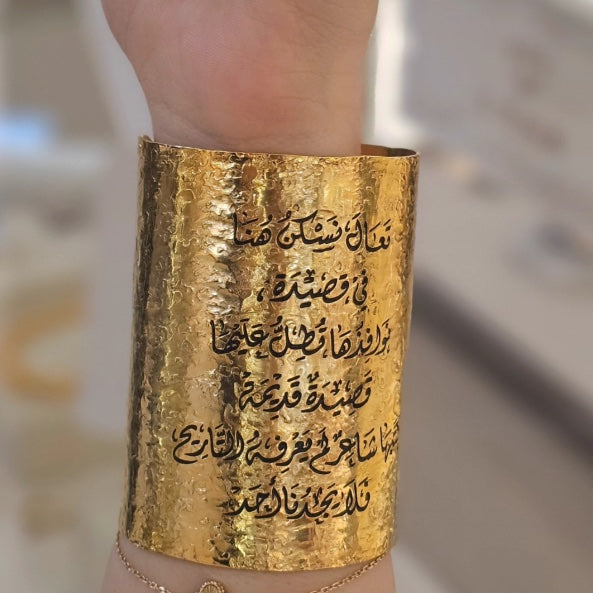 تَعَالَ نَسْكُنُ هُنَا
فِي قَصِيْدَة،
نَوَافِذُهَا تُطِلُّ عَلَيْهَا
قَصِيْدَةٌ قَدِيْمَةٌ
شَاعِرٌ لَمْ يَعْرِفهُ التَّارِيخ،
فَلَا يَجِدُنَا أَحَدْ